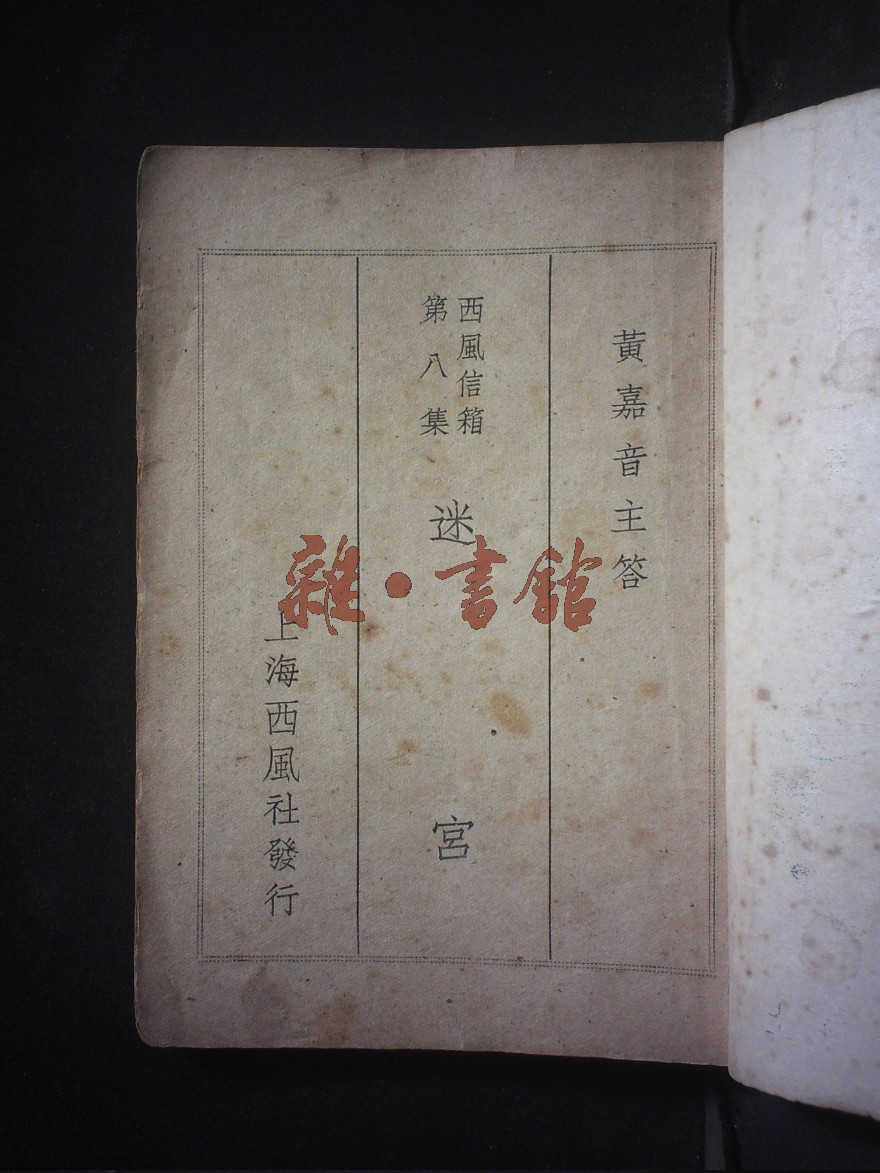 黃嘉音主答
西風信箱
第八集
迷宮
上海西風社發行
雜·書館